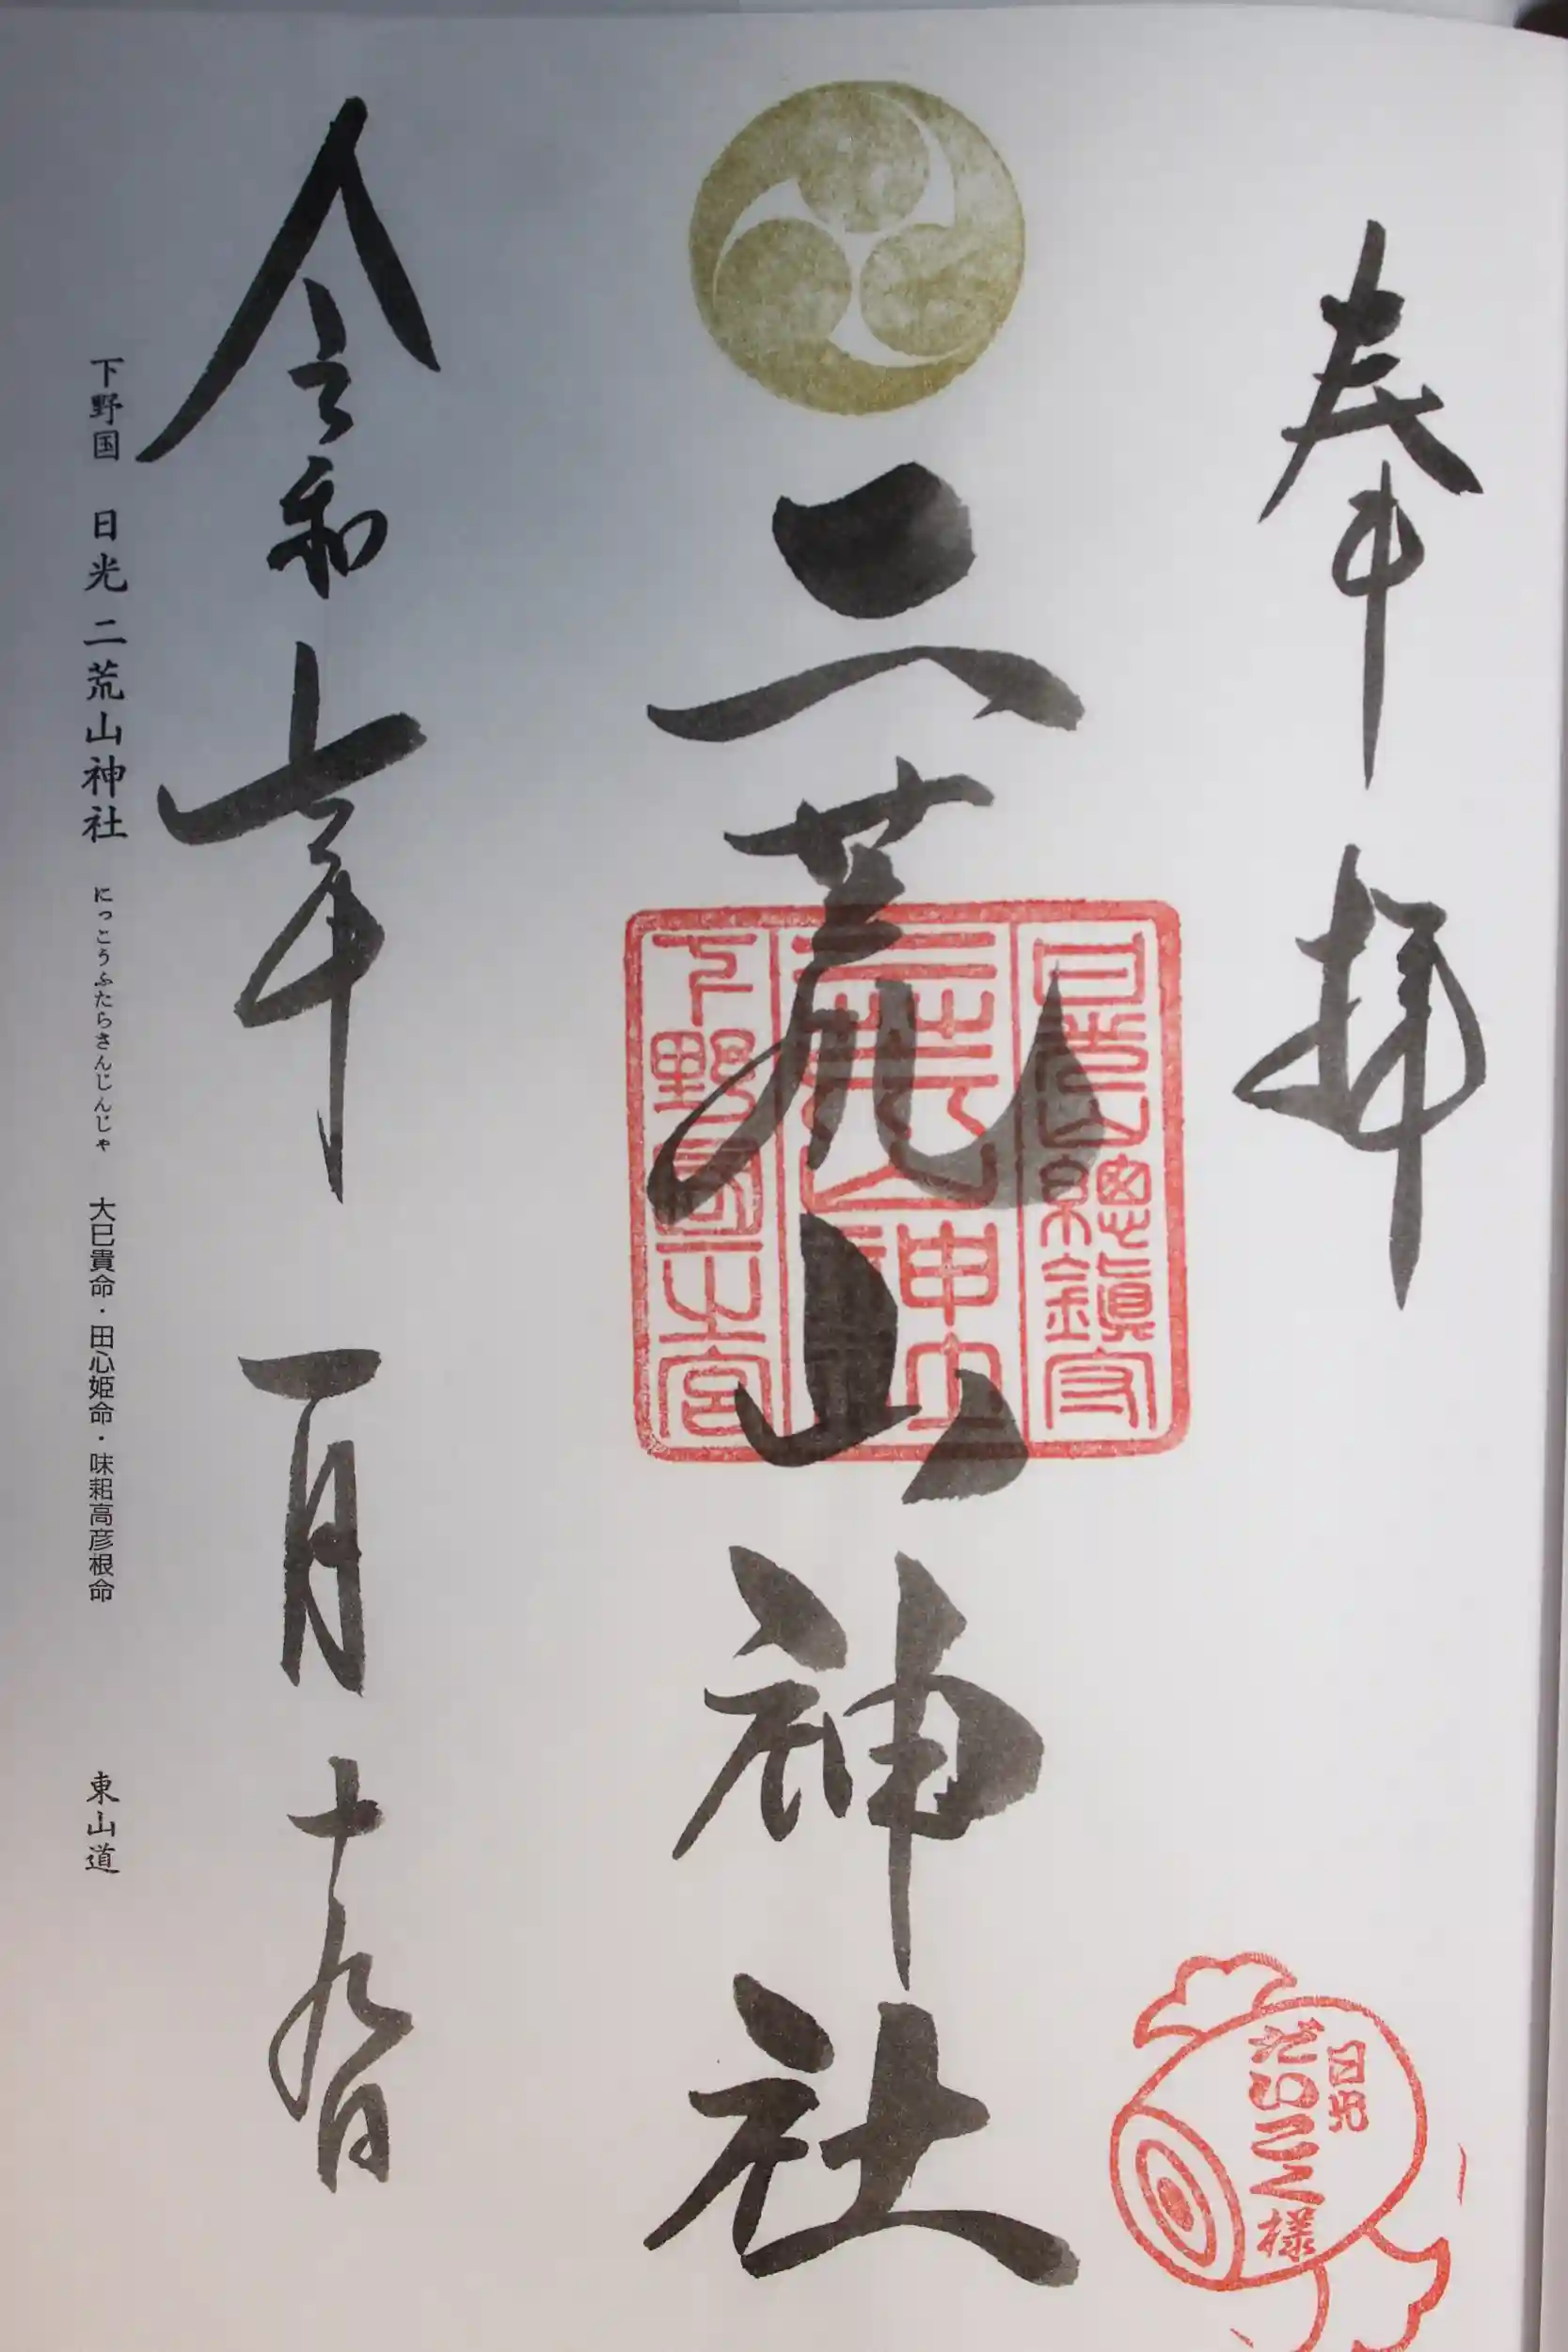 奉拝
二荒山神社
日光山總鎮守
二荒山神社
下野國一之宮
日光
だいこく様
令和七年 一月 十九日
下野国 日光 二荒山神社 にっこうふたらさんじんじゃ 大巳貴命・田心姫命・味耜高彦根命 東山道